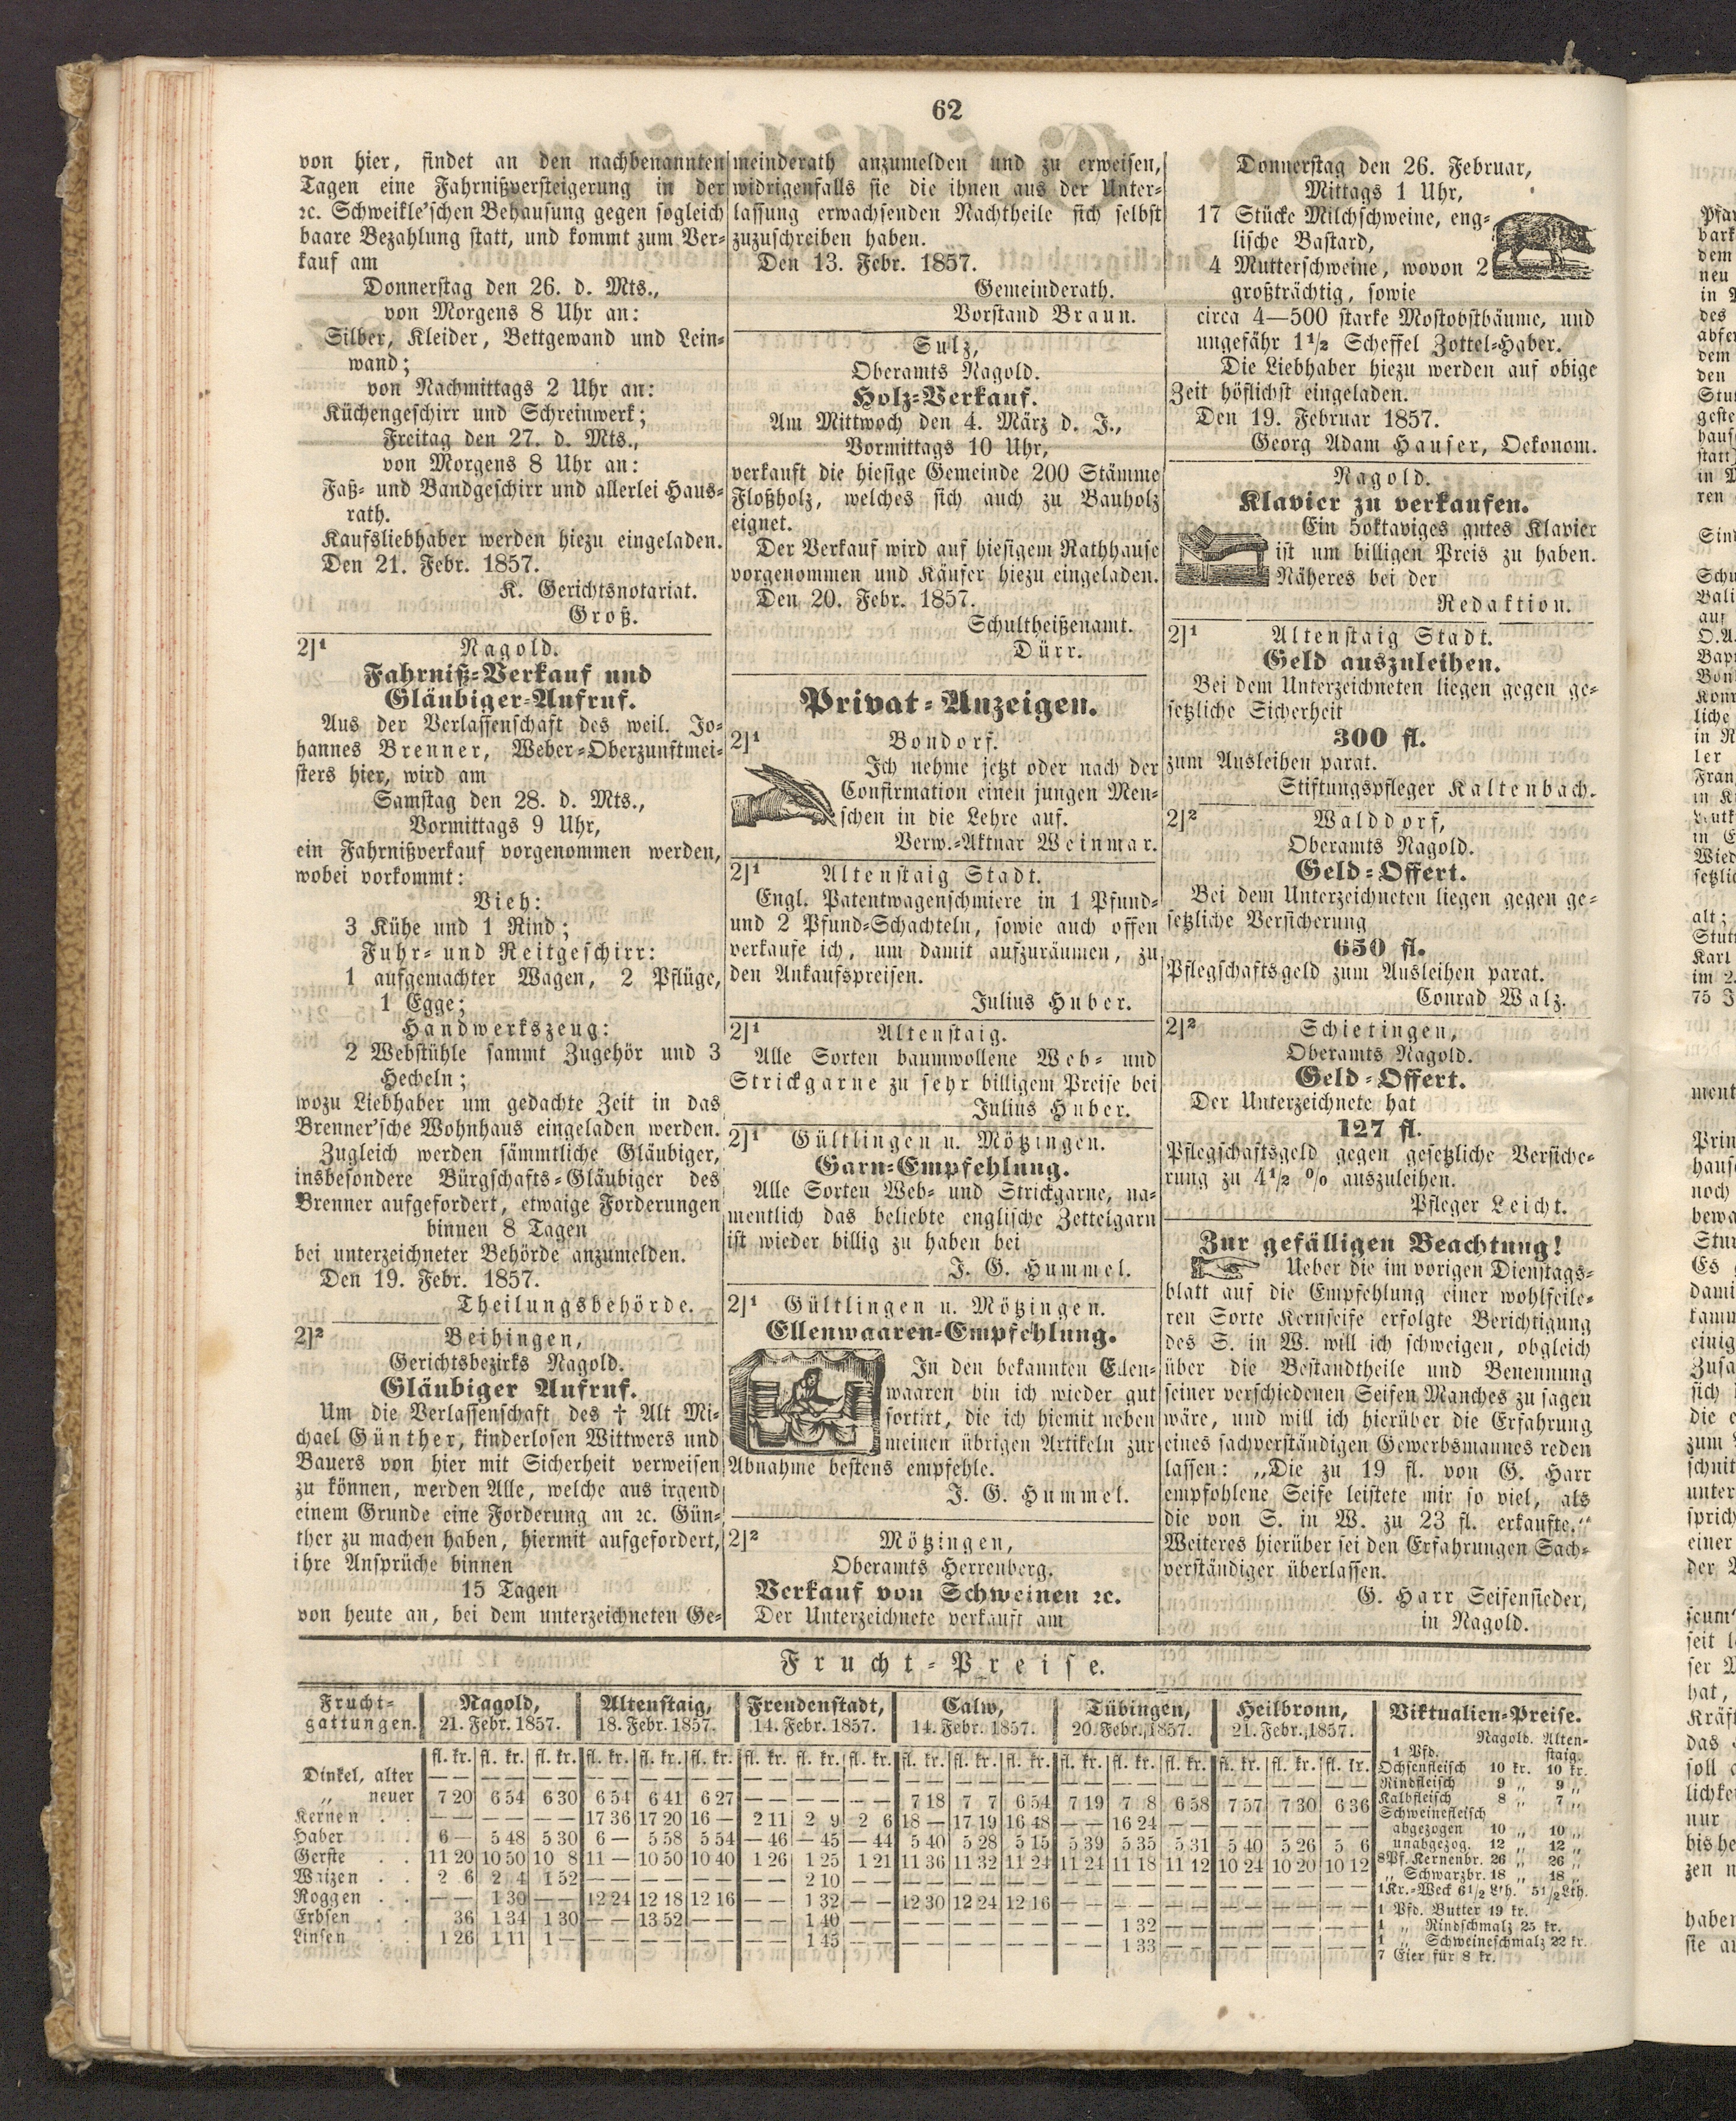 62
von hier, findet an den nachbenannten
Tagen eine Fahrnißversteigerung in der
ꝛc. Schweikle'schen Behausung gegen sogleich
baare Bezahlung statt, und kommt zum Ver-
kauf am
Donnerstag den 26. d. Mts.,
von Morgens 8 Uhr an:
Silber, Kleider, Bettgewand und Lein-
wand;
von Nachmittags 2 Uhr an:
Küchengeschirr und Schreinwerk;
Freitag den 27. d. Mts.,
von Morgens 8 Uhr an:
Faß- und Bandgeschirr und allerlei Haus-
rath.
Kaufsliebhaber werden hiezu eingeladen.
Den 21. Febr. 1857.
K. Gerichtsnotariat.
Groß.
2]1 Nagold.
Fahrniß-Verkauf und
Gläubiger-Aufruf.
Aus der Verlassenschaft des weil. Jo-
hannes Brenner, Weber-Oberzunftmei-
sters hier, wird am
Samstag den 28. d. Mts.,
Vormittags 9 Uhr,
ein Fahrnißverkauf vorgenommen werden,
wobei vorkommt:
Vieh:
3 Kühe und 1 Rind;
Fuhr- und Reitgeschirr:
1 aufgemachter Wagen, 2 Pflüge,
1 Egge;
Handwerkszeug:
2 Webstühle sammt Zugehör und 3
Hecheln;
wozu Liebhaber um gedachte Zeit in das
Brenner'sche Wohnhaus eingeladen werden.
Zugleich werden sämmtliche Gläubiger,
insbesondere Bürgschafts-Gläubiger des
Brenner aufgefordert, etwaige Forderungen
binnen 8 Tagen
bei unterzeichneter Behörde anzumelden.
Den 19. Febr. 1857.
Theilungsbehörde.
2]2 Beihingen,
Gerichtsbezirks Nagold.
Gläubiger Aufruf.
Um die Verlassenschaft des † Alt Mi-
chael Günther, kinderlosen Wittwers und
Bauers von hier mit Sicherheit verweisen
zu können, werden Alle, welche aus irgend
einem Grunde eine Forderung an ꝛc. Gün-
ther zu machen haben, hiermit aufgefordert,
ihre Ansprüche binnen
15 Tagen
von heute an, bei dem unterzeichneten Ge-
meinderath anzumelden und zu erweisen,
widrigenfalls sie die ihnen aus der Unter-
lassung erwachsenden Nachtheile sich selbst
zuzuschreiben haben.
Den 13. Febr. 1857.
Gemeinderath.
Vorstand Braun.
Sulz,
Oberamts Nagold.
Holz-Verkauf.
Am Mittwoch den 4. März d. J.,
Vormittags 10 Uhr,
verkauft die hiesige Gemeinde 200 Stämme
Floßholz, welches sich auch zu Bauholz
eignet.
Der Verkauf wird auf hiesigem Rathhause
vorgenommen und Käufer hiezu eingeladen.
Den 20. Febr. 1857.
Schultheißenamt.
Dürr.
Privat-Anzeigen.
2]1 Bondorf.
Ich nehme jetzt oder nach der
Confirmation einen jungen Men-
schen in die Lehre auf.
Verw.-Aktuar Weinmar.
2]1 Altenstaig Stadt.
Engl. Patentwagenschmiere in 1 Pfund-
und 2 Pfund-Schachteln, sowie auch offen
verkaufe ich, um damit aufzuräumen, zu
den Ankaufspreisen.
Julius Huber.
2]1 Altenstaig.
Alle Sorten baumwollene Web- und
Strickgarne zu sehr billigem Preise bei
Julius Huber.
2]1 Gültlingen u. Mötzingen.
Garn-Empfehlung.
Alle Sorten Web- und Strickgarne, na-
mentlich das beliebte englische Zettelgarn
ist wieder billig zu haben bei
J. G. Hummel.
2]1 Gültlingen u. Mötzingen.
Ellenwaaren-Empfehlung.
In den bekannten Ellen-
waaren bin ich wieder gut
sortirt, die ich hiemit neben
meinen übrigen Artikeln zur
Abnahme bestens empfehle.
J. G. Hummel.
2]2 Mötzingen,
Oberamts Herrenberg.
Verkauf von Schweinen ꝛc.
Der Unterzeichnete verkauft am
Donnerstag den 26. Februar,
Mittags 1 Uhr,
17 Stücke Milchschweine, eng-
lische Bastard,
4 Mutterschweine, wovon 2
großträchtig, sowie
circa 4—500 starke Mostobstbäume, und
ungefähr 1 1/2 Scheffel Zottel-Haber.
Die Liebhaber hiezu werden auf obige
Zeit höflichst eingeladen.
Den 19. Februar 1857.
Georg Adam Hauser, Oekonom.
Nagold.
Klavier zu verkaufen.
Ein 5oktaviges gutes Klavier
ist um billigen Preis zu haben.
Näheres bei der
Redaktion.
2]1 Altenstaig Stadt.
Geld auszuleihen.
Bei dem Unterzeichneten liegen gegen ge-
setzliche Sicherheit
300 fl.
zum Ausleihen parat.
Stiftungspfleger Kaltenbach.
2]2 Walddorf,
Oberamts Nagold.
Geld-Offert.
Bei dem Unterzeichneten liegen gegen ge-
setzliche Versicherung
650 fl.
Pflegschaftsgeld zum Ausleihen parat.
Conrad Walz.
2]2 Schietingen,
Oberamts Nagold.
Geld-Offert.
Der Unterzeichnete hat
127 fl.
Pflegschaftsgeld gegen gesetzliche Versiche-
rung zu 4 1/2 % auszuleihen.
Pfleger Leicht.
Zur gefälligen Beachtung!
Ueber die im vorigen Dienstags-
blatt auf die Empfehlung einer wohlfeile-
ren Sorte Kernseife erfolgte Berichtigung
des S. in W. will ich schweigen, obgleich
über die Bestandtheile und Benennung
seiner verschiedenen Seifen Manches zu sagen
wäre, und will ich hierüber die Erfahrung
eines sachverständigen Gewerbsmannes reden
lassen: „Die zu 19 fl. von G. Harr
empfohlene Seife leistete mir so viel, als
die von S. in W. zu 23 fl. erkaufte.“
Weiteres hierüber sei den Erfahrungen Sach-
verständiger überlassen.
G. Harr Seifensieder,
in Nagold.
Frucht-Preise.
Frucht-gattungen. Nagold, 21. Febr. 1857. Altenstaig, 18. Febr. 1857. Freudenstadt, 14. Febr. 1857. Calw, 14. Febr. 1857. Tübingen, 20. Febr. 1857. Heilbronn, 21. Febr. 1857.
fl. kr. fl. kr. fl. kr. fl. kr. fl. kr. fl. kr. fl. kr. fl. kr. fl. kr. fl. kr. fl. kr. fl. kr. fl. kr. fl. kr. fl. kr. fl. kr. fl. kr. fl. kr.
Dinkel, alter — — — — — — — — — — — — — — — — — — — — — — — — — — — — — — — — — — — —
„ neuer 7 20 6 54 6 30 6 54 6 41 6 27 — — — — — — 7 18 7 7 6 54 7 19 7 8 6 58 7 57 7 30 6 36
Kernen . . — — — — — — 17 36 17 20 16 — 2 11 2 9 2 6 18 — 17 19 16 48 — — 16 24 — — — — — — — —
Haber . . 6 — 5 48 5 30 6 — 5 58 5 54 — 46 — 45 — 44 5 40 5 28 5 15 5 39 5 35 5 31 5 40 5 26 5 6
Gerste . . 11 20 10 50 10 8 11 — 10 50 10 40 1 26 1 25 1 21 11 36 11 32 11 24 11 24 11 18 11 12 10 24 10 20 10 12
Waizen . . 2 6 2 4 1 52 — — — — — — — — 2 10 — — — — — — — — — — — — — — — — — — — —
Roggen . . — — 1 30 — — 12 24 12 18 12 16 — — 1 32 — — 12 30 12 24 12 16 — — — — — — — — — — — —
Erbsen . . 36 1 34 1 30 — — 13 52 — — — — 1 40 — — — — — — — — — — 1 32 — — — — — — — —
Linsen . . 1 26 1 11 1 — — — — — — — — — 1 45 — — — — — — — — — — 1 33 — — — — — — — —
Viktualien-Preise.
Nagold. Alten-staig.
1 Pfd.
Ochsenfleisch 10 kr. 10 kr.
Rindfleisch 9 „ 9 „
Kalbfleisch 8 „ 7 „
Schweinefleisch
abgezogen 10 „ 10 „
unabgezog. 12 „ 12 „
8 Pf. Kernenbr. 26 „ 26 „
„ Schwarzbr. 18 „ 18 „
1 Kr.-Weck 6 1/2 Lth. 5 1/2 Lth.
1 Pfd. Butter 19 kr.
1 „ Rindschmalz 25 kr.
1 „ Schweineschmalz 22 kr.
7 Eier für 8 kr.